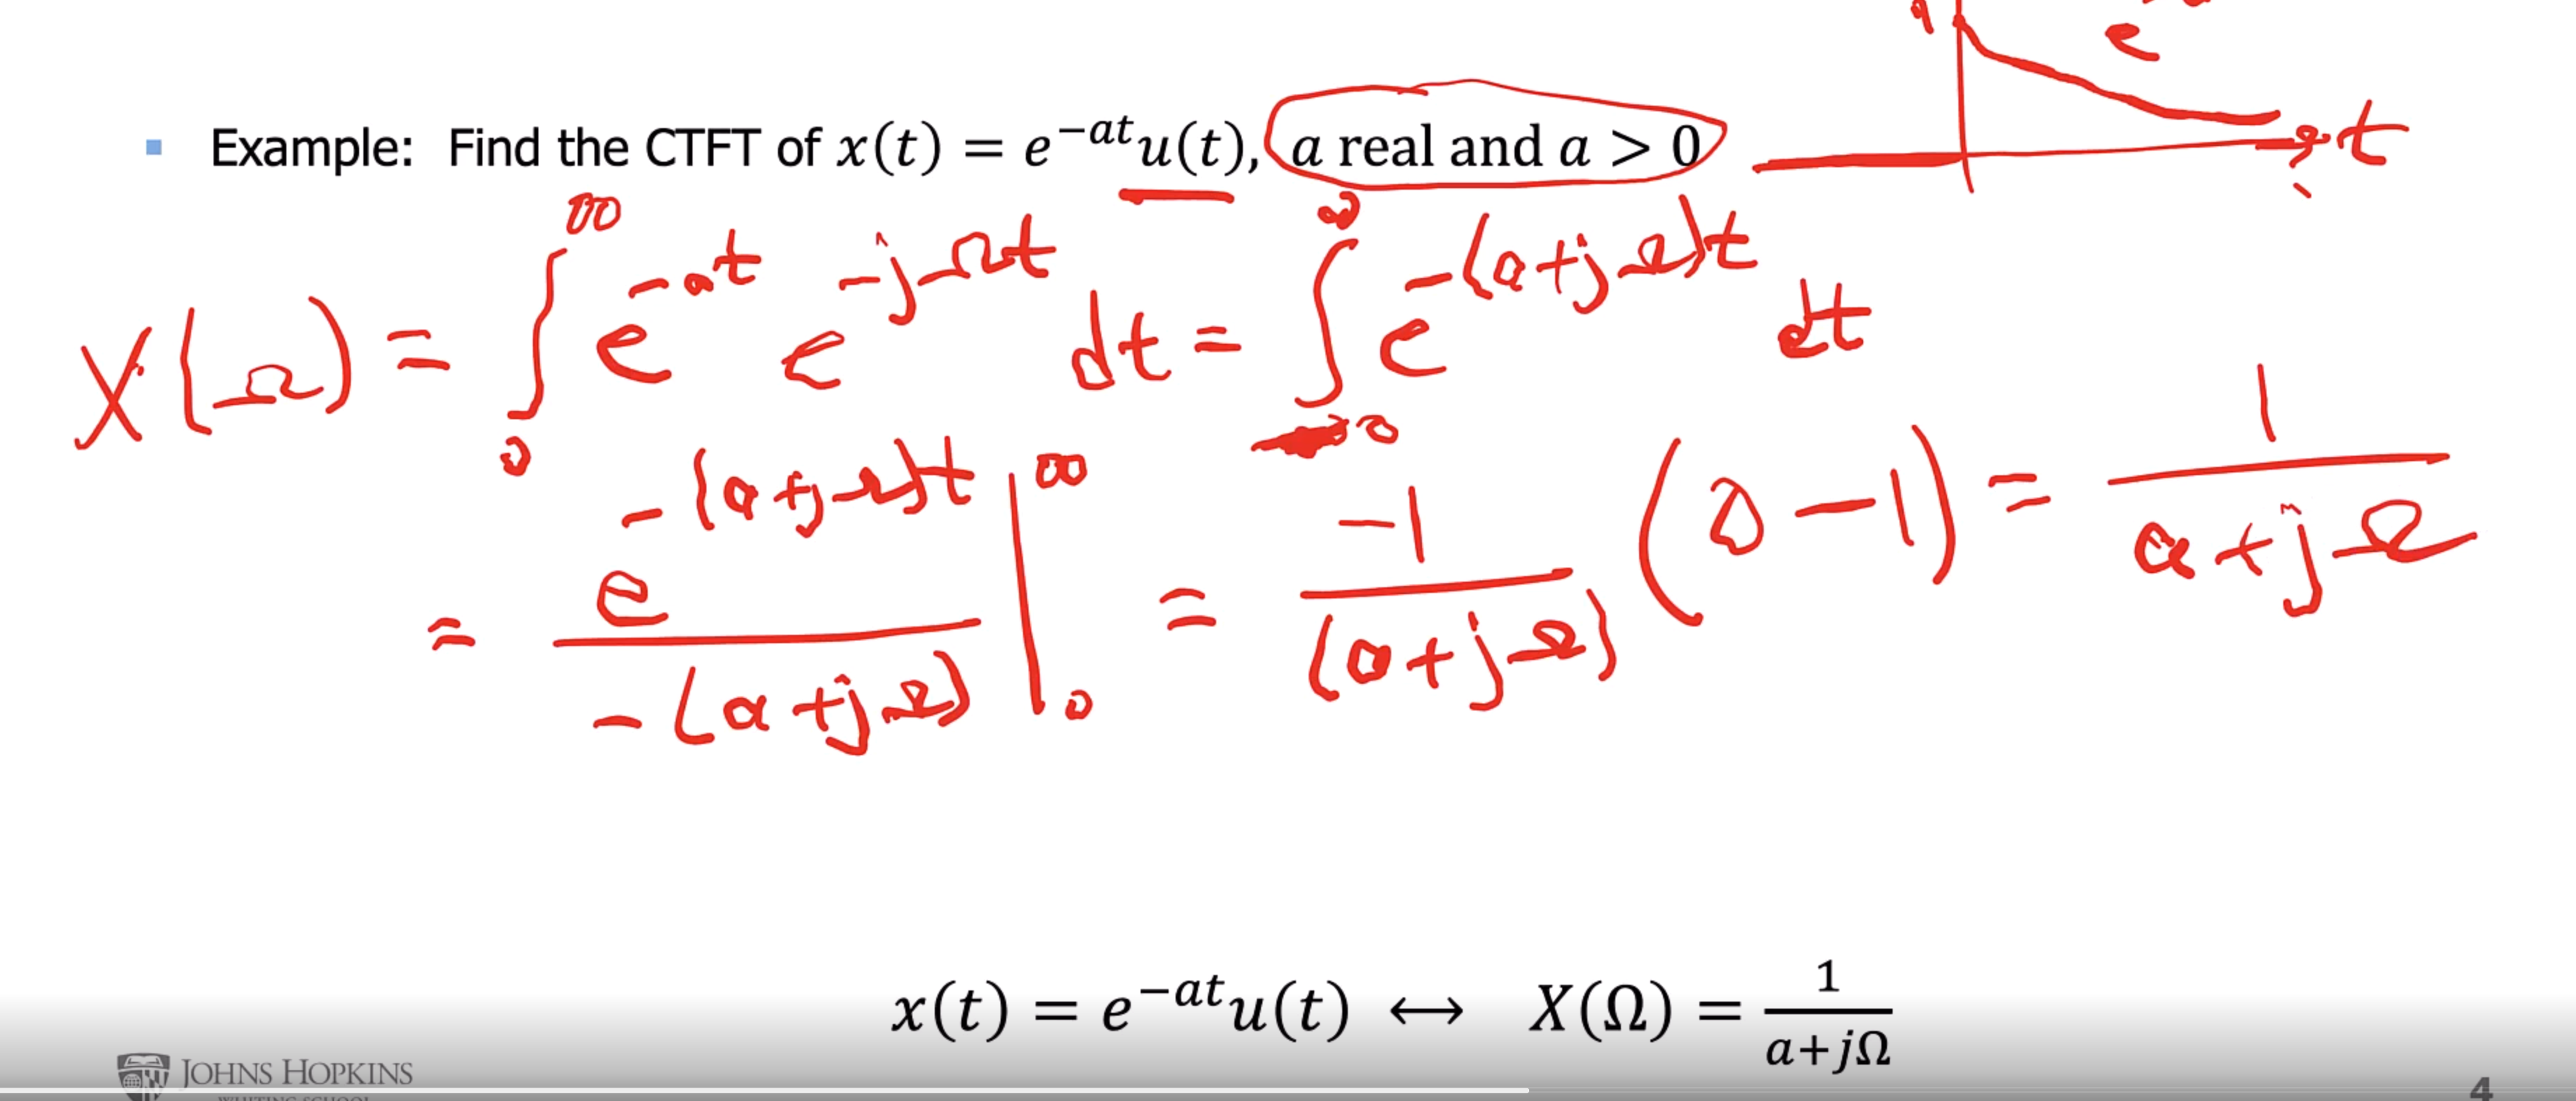 Example: Find the CTFT of x(t) = e^{-at}u(t), a real and a > 0
e
t
X(Ω) = ∫_0^∞ e^{-at} e^{-jΩt} dt = ∫_0^∞ e^{-(a+jΩ)t} dt
= e^{-(a+jΩ)t} / -(a+jΩ) |_0^∞ = -1/(a+jΩ) (0-1) = 1/(a+jΩ)
x(t) = e^{-at}u(t) ↔ X(Ω) = 1/(a+jΩ)
JOHNS HOPKINS
WHITING SCHOOL
4